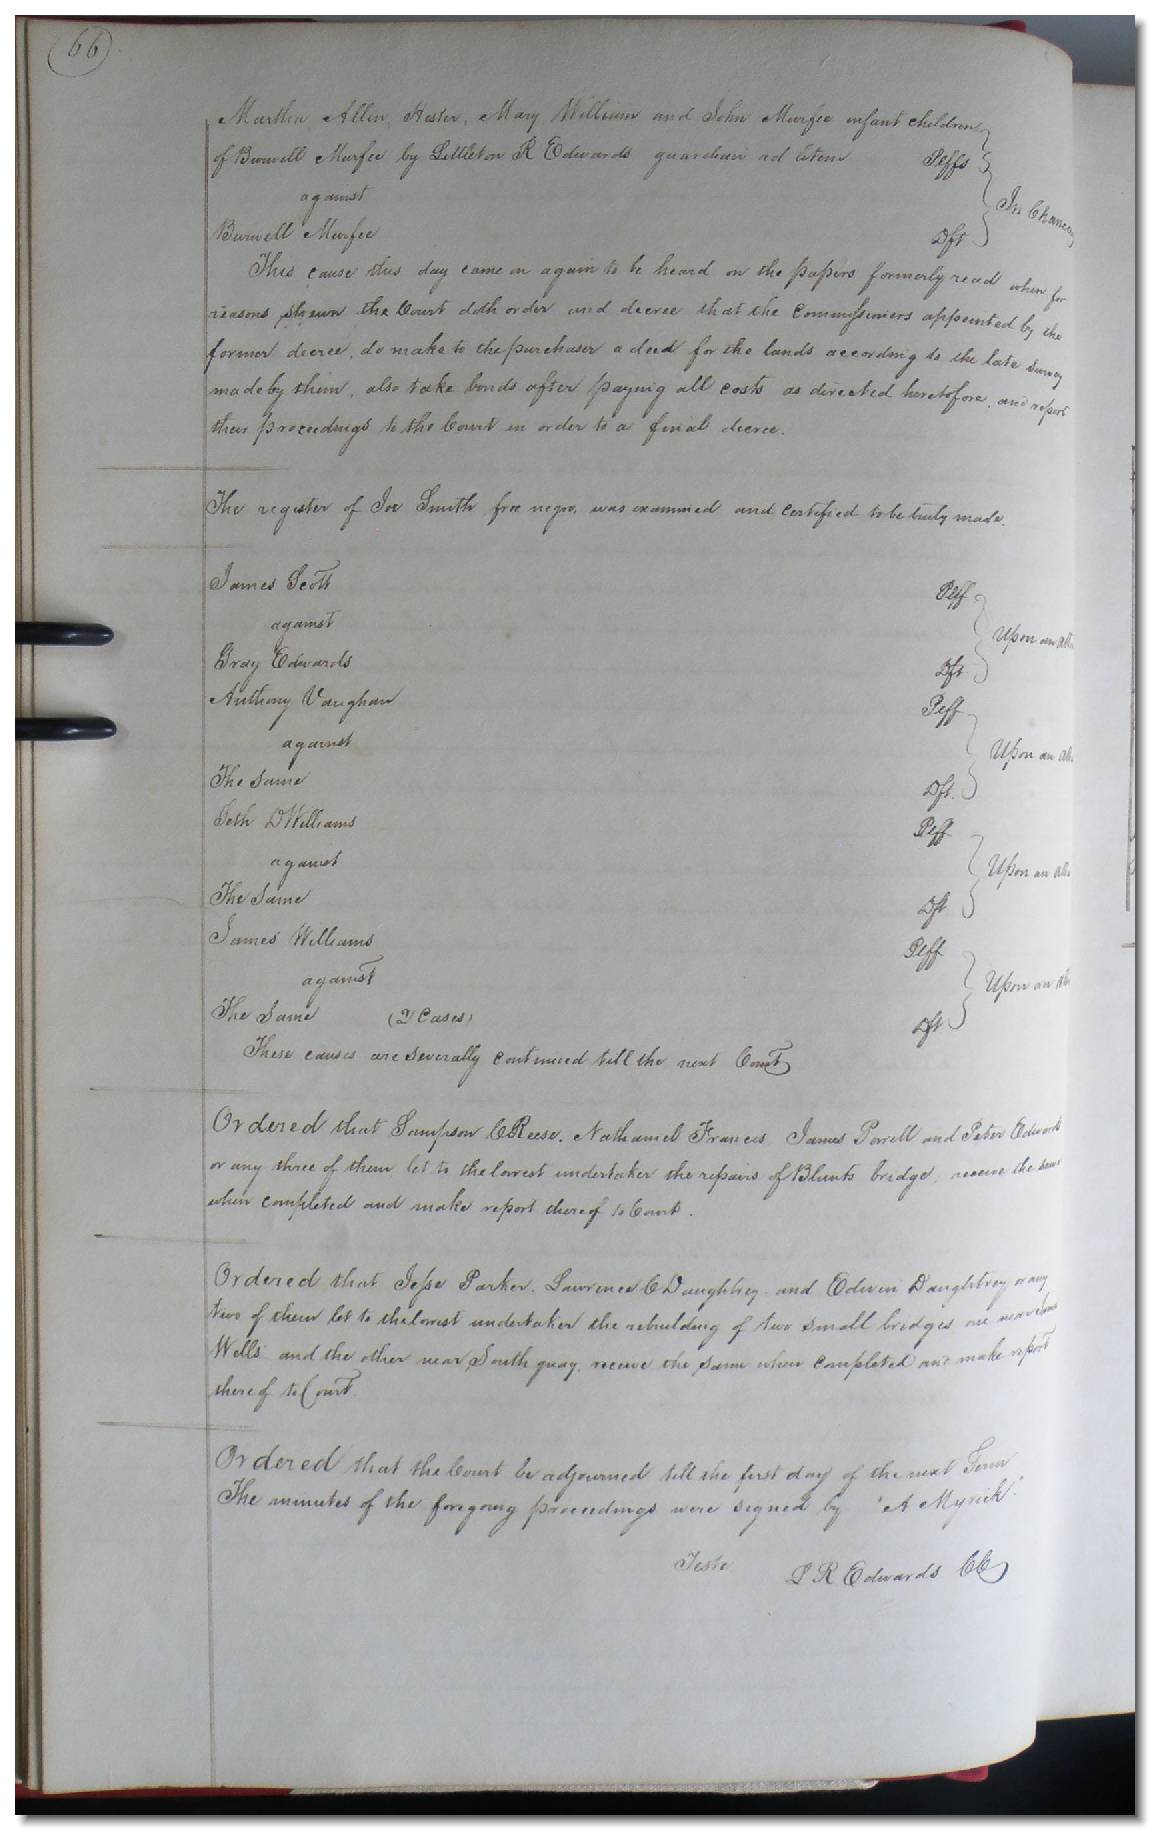 66
Martha, Allen, Hester, Mary William and John Murfee infant children
of Burwell Murfee by Littleton R Edwards guardian ad litem Plffs
against In Chancery
Burwell Murfee Dft
This cause this day came on again to be heard on the papers formerly read when for
reasons shewn the Court doth order and decree that the Commissioners appointed by the
former decree, do make to the purchaser a deed for the lands according to the late survey
made by them, also take bonds after paying all costs as directed heretofore, and report
their proceedings to the Court in order to a final decree.
The register of Joe Smith free negro, was examined and certified to be truly made.
James Scott Plff
against Upon an
Gray Edwards Dft
Anthony Vaughan Plff
against Upon an
The same Dft.
Seth D Williams Plff
against Upon an
The Same Dft
James Williams Plff
against Upon an
The Same (2 Cases) Dft
These causes are severally continued till the next Court
Ordered that Sampson C Reese, Nathaniel Francis James Powell and Peter Edwards
or any three of them let to the lowest undertaker the repairs of Blunts bridge, receive the same
when completed and make report thereof to Court.
Ordered that Jesse Parker, Lawrence C Daughtrey and Edwin Daughtrey or any
two of them let to the lowest undertaker the rebuilding of two small bridges one near
Wells and the other near South quay, receive the same when completed and make report
thereof to Court
Ordered that the Court be adjourned till the first day of the next Term
The minutes of the foregoing proceedings were signed by "A Myrick."
Teste L R Edwards CC